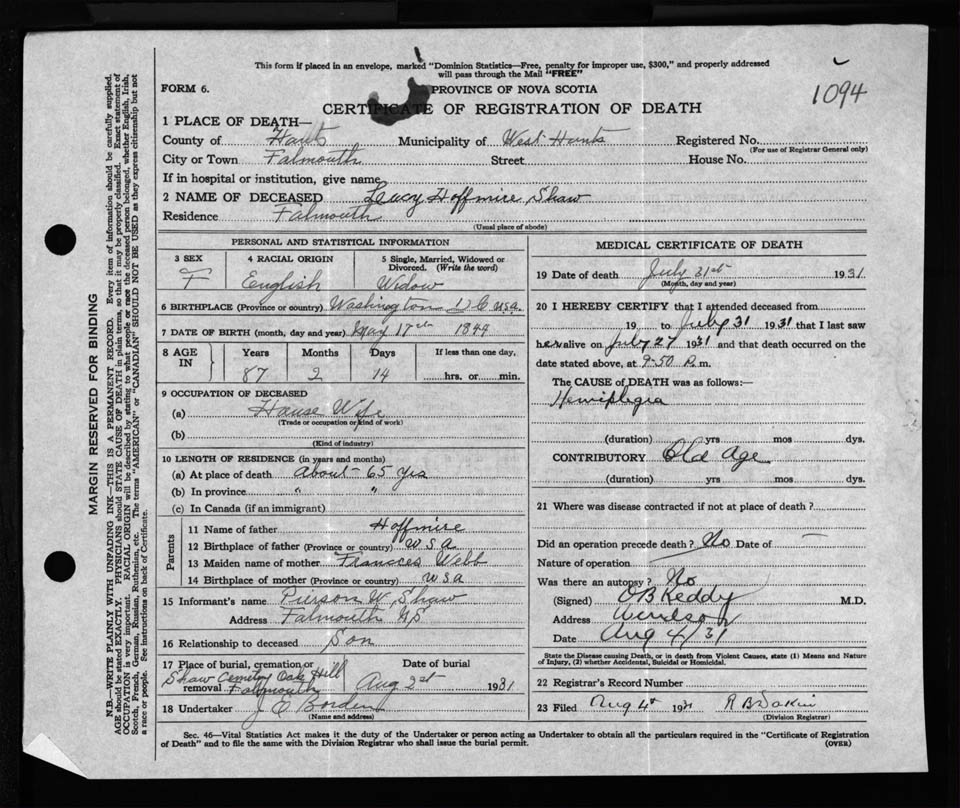 This form if placed in an envelope, marked "Dominion Statistics—Free, penalty for improper use, $300," and properly addressed
will pass through the Mail "FREE"
1094
FORM 6.
PROVINCE OF NOVA SCOTIA
CERTIFICATE OF REGISTRATION OF DEATH
1 PLACE OF DEATH—
County of Hants Municipality of West Hants Registered No.
(For use of Registrar General only)
City or Town Falmouth Street House No.
If in hospital or institution, give name
2 NAME OF DECEASED Lucy Hoffmire Shaw
Residence Falmouth
(Usual place of abode)
PERSONAL AND STATISTICAL INFORMATION
3 SEX 4 RACIAL ORIGIN 5 Single, Married, Widowed or
Divorced. (Write the word)
F English Widow
6 BIRTHPLACE (Province or country) Washington D C USA.
7 DATE OF BIRTH (month, day and year) May 17th 1844
8 AGE IN Years Months Days If less than one day,
87 2 14 hrs. or min.
9 OCCUPATION OF DECEASED
(a) House Wife
(Trade or occupation or kind of work)
(b)
(Kind of industry)
10 LENGTH OF RESIDENCE (in years and months)
(a) At place of death About 65 yrs
(b) In province " "
(c) In Canada (if an immigrant)
Parents
11 Name of father Hoffmire
12 Birthplace of father (Province or country) USA
13 Maiden name of mother Fransces Webb
14 Birthplace of mother (Province or country) USA
15 Informant's name Pierson W. Shaw
Address Falmouth NS
16 Relationship to deceased Son
17 Place of burial, cremation or removal Shaw Cemetry Oak Hill Falmouth
Date of burial Aug 2st 1931
18 Undertaker J C Borden
(Name and address)
MEDICAL CERTIFICATE OF DEATH
19 Date of death July 31st 1931.
(Month, day and year)
20 I HEREBY CERTIFY that I attended deceased from
19 to July 31 1931 that I last saw
her alive on July 27 1931 and that death occurred on the
date stated above, at 9-50 P.m.
The CAUSE of DEATH was as follows:—
Hemiplegia
(duration) yrs mos dys.
CONTRIBUTORY Old Age
(duration) yrs. mos. dys.
21 Where was disease contracted if not at place of death?
Did an operation precede death? No Date of —
Nature of operation
Was there an autopsy? No
(Signed) O B Keddy M.D.
Address Windsor
Date Aug 4/31
State the Disease causing Death, or in death from Violent Causes, state (1) Means and Nature
of Injury, (2) whether Accidental, Suicidal or Homicidal.
22 Registrar's Record Number
23 Filed Aug 4th 1931 R B Dakin
(Division Registrar)
Sec. 46—Vital Statistics Act makes it the duty of the Undertaker or person acting as Undertaker to obtain all the particulars required in the "Certificate of Registration
of Death" and to file the same with the Division Registrar who shall issue the burial permit. (OVER)
MARGIN RESERVED FOR BINDING
N.B.—WRITE PLAINLY WITH UNFADING INK—THIS IS A PERMANENT RECORD. Every item of information should be carefully supplied.
AGE should be stated EXACTLY. PHYSICIANS should STATE CAUSE OF DEATH in plain terms, so that it may be properly classified. Exact statement of
OCCUPATION is very important. RACIAL ORIGIN will be described by stating to what people or race the deceased person belonged, whether English, Irish,
Scotch, French, German, Russian, Ruthenian, etc. The terms "AMERICAN" or "CANADIAN" SHOULD NOT BE USED as they express citizenship but not
a race or people. See instructions on back of Certificate.